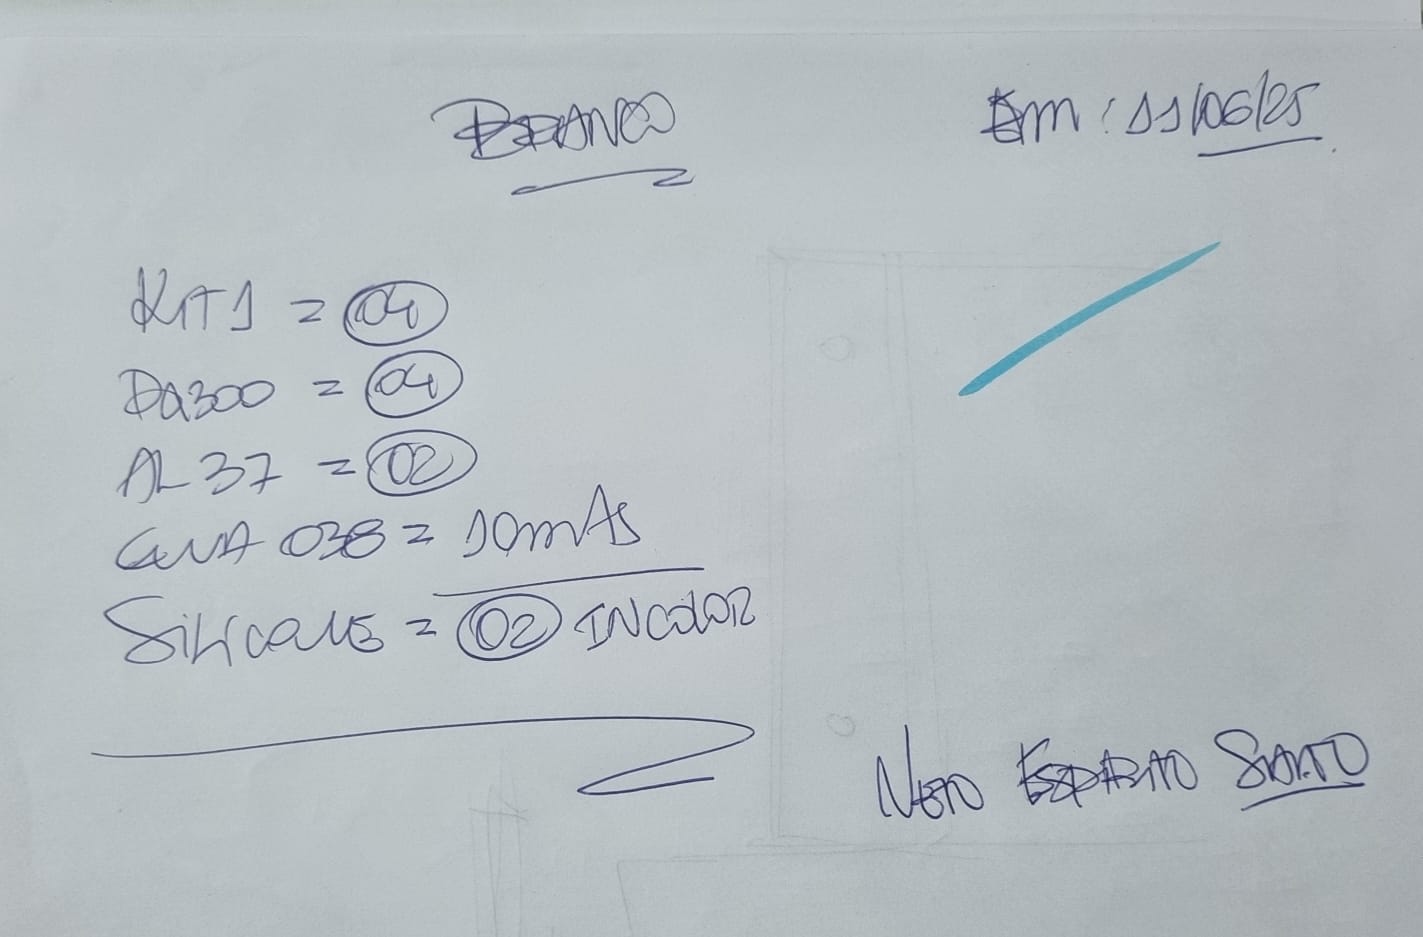 BRANCO
Em: 11/06/25
KIT1 = 04
DQ300 = 04
AL 37 = 02
GUA 038 = 10mts
SILICONE = 02 INCOLOR
NETO ESPIRITO SANTO